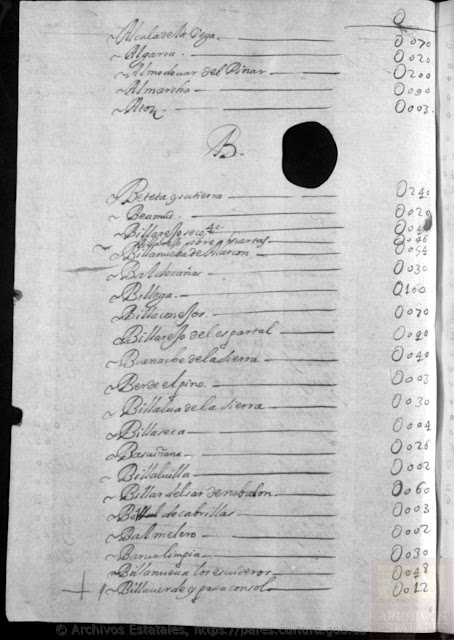 0
Alcala de la Vega 0070
Algarra 0020
Almodouar del Pinar 0200
Almarcha 0090
Aton 0003
B.
Beteta y sutierra 0240
Beamud 0020
Billarejo seco
Billanueba de Alarcon 0054
Baldecañas 0030
Bellega 0100
Billaconejos 0070
Billarejo del espartal 0090
Buenache de la sierra 0040
Berdelpino 0003
Billalua de la sierra 0030
Billaseca 0004
Bascuñana 0026
Billalbilla 0002
Billar del sar de nabalon 0060
de cabrillas 0003
Balmelero 0002
Barua limpia 0030
Billanueua los escuderos 0048
Billauerde y pasaconsol 0012
© Archivos Estatales, https://pares.cultura.gob.es